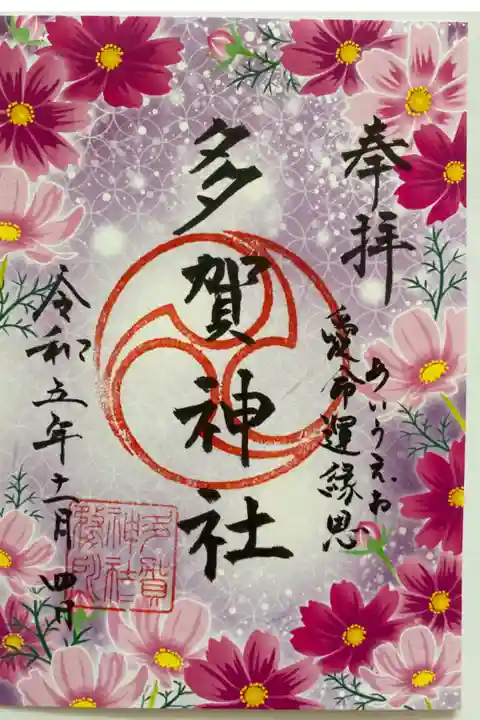 奉拝
あいうえお
愛命運縁恩
多賀神社
令和五年十一月四日
多賀
神社